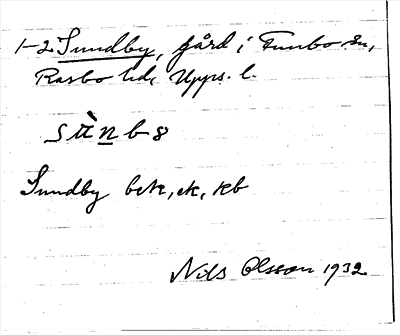 1-2 Sundby, gård i Funbo sn,
Rasbo hd, Upps. l.
Sundby bek, ek, kb
Nils Olsson 1932